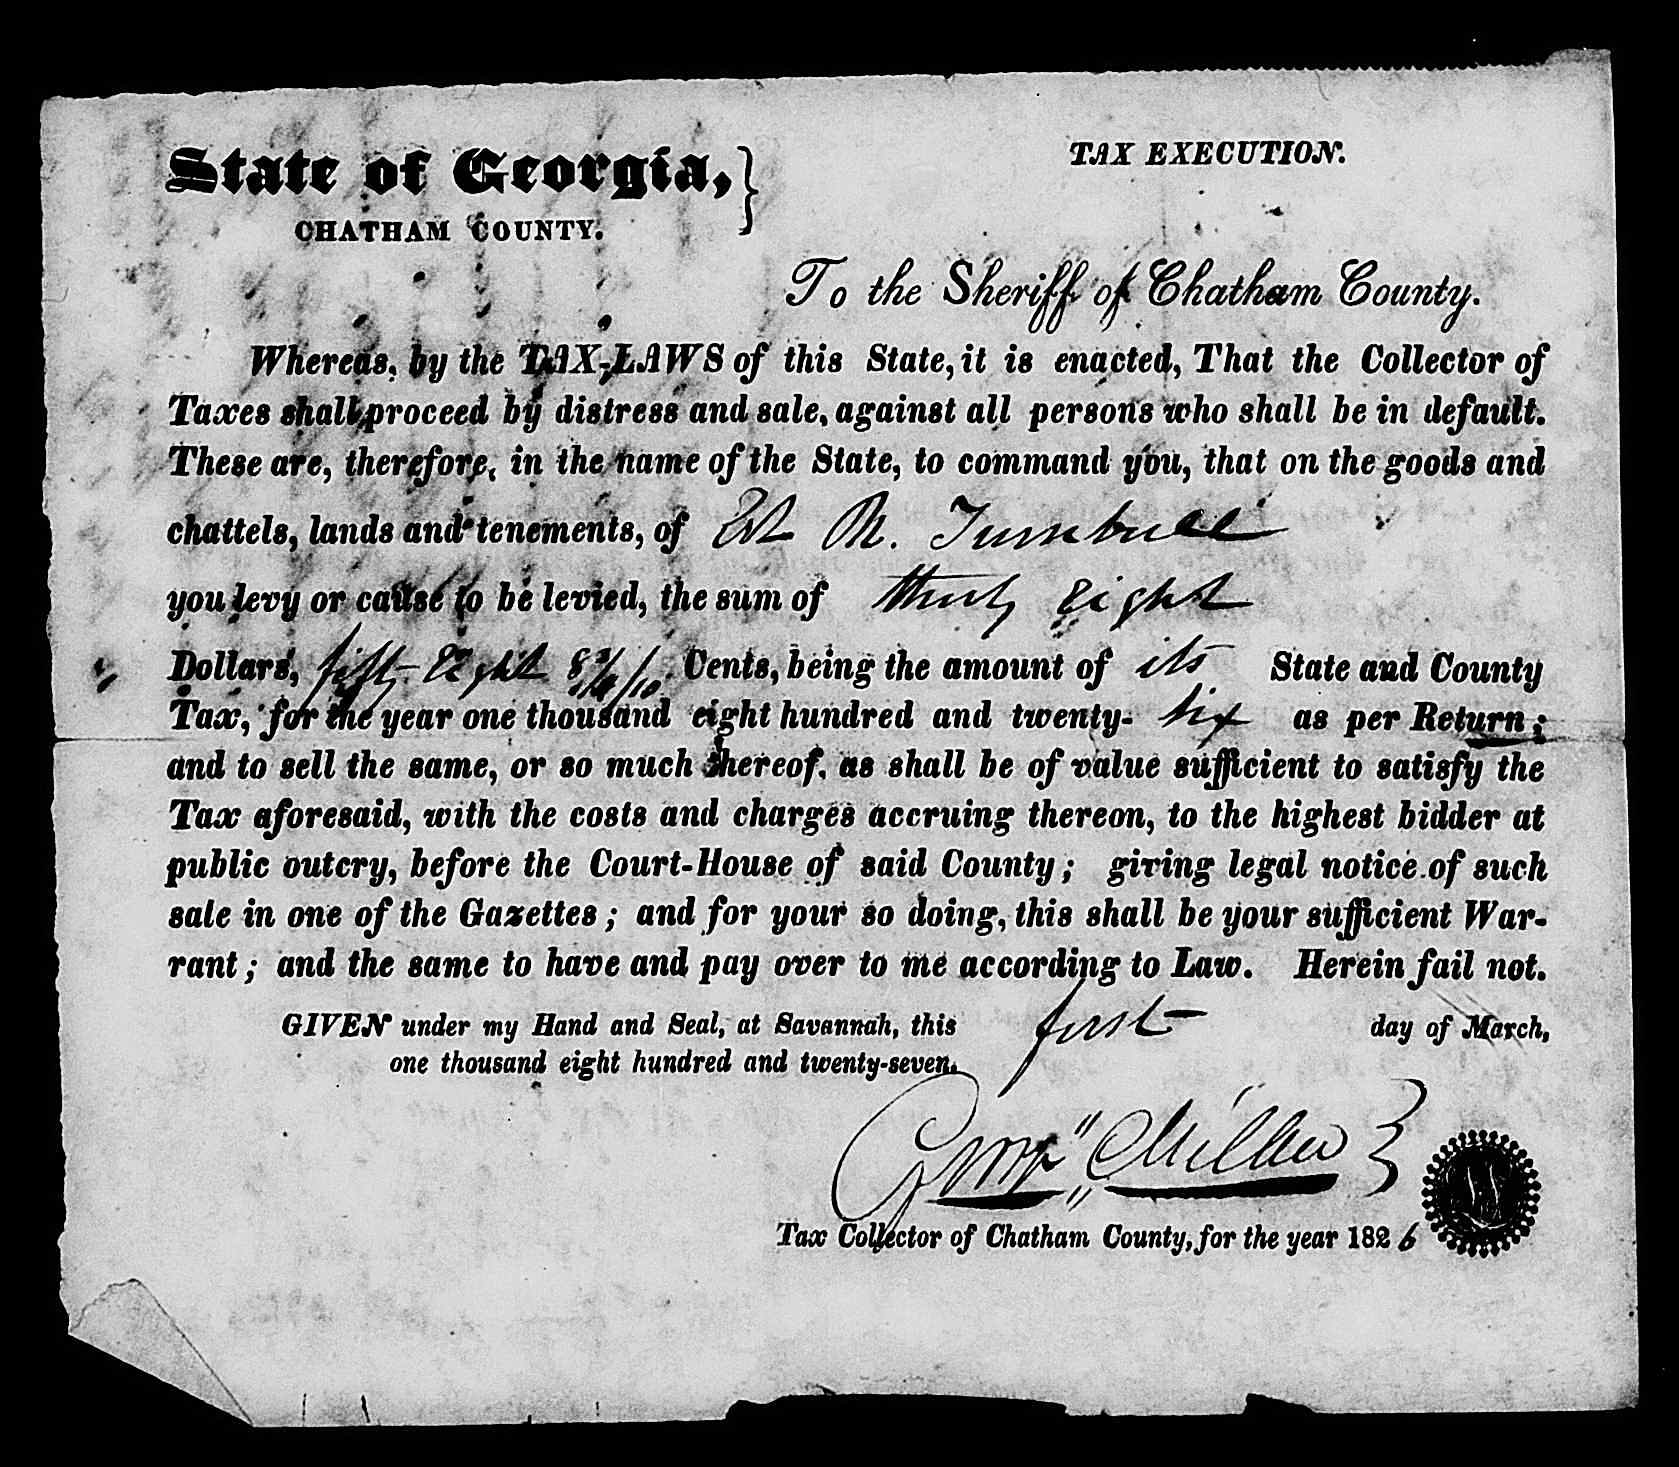 State of Georgia,
CHATHAM COUNTY.
TAX EXECUTION.
To the Sheriff of Chatham County.
Whereas, by the TAX-LAWS of this State, it is enacted, That the Collector of
Taxes shall proceed by distress and sale, against all persons who shall be in default.
These are, therefore, in the name of the State, to command you, that on the goods and
chattels, lands and tenements, of Est N. Turnbull
you levy or cause to be levied, the sum of thirty Eight
Dollars, fifty Eight Cents, being the amount of its State and County
Tax, for the year one thousand eight hundred and twenty- six as per Return;
and to sell the same, or so much thereof, as shall be of value sufficient to satisfy the
Tax aforesaid, with the costs and charges accruing thereon, to the highest bidder at
public outcry, before the Court-House of said County; giving legal notice of such
sale in one of the Gazettes; and for your so doing, this shall be your sufficient War-
rant; and the same to have and pay over to me according to Law. Herein fail not.
GIVEN under my Hand and Seal, at Savannah, this first day of March,
one thousand eight hundred and twenty-seven.
Miller
Tax Collector of Chatham County, for the year 1826